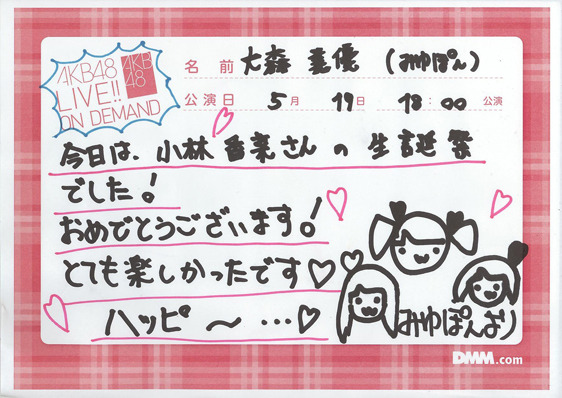 AKB48
LIVE!!
ON DEMAND
AKB
48
名前 大森美優 (みゆぽん)
公演日 5月19日 18:00公演
今日は、小林香菜さんの生誕祭
でした!
おめでとうございます!
とても楽しかったです♡♡
ハッピ〜…♡
みゆぽんより
DMM.com